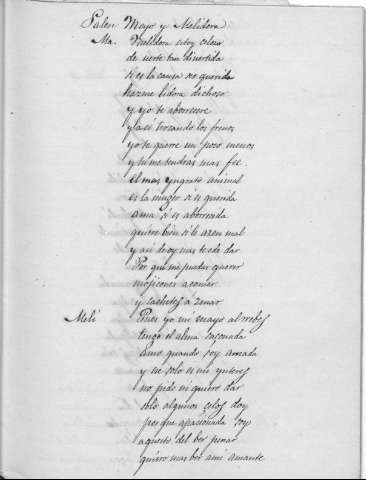 Salen Mayo y Melidora
Ma. Melidora estoy celoso
de verte tan divertida
si es la causa ser querida
hazme lidora dichoso
y yo te aborresere
y asi torcando los frenos
yo te querre un poco menos
y tu me tendras mas fee
el mas yngrato animal
es la muger si es querida
ama si es aborrecida
quiere bien si le azen mal
y asi de oy mas te e de dar
Por que me puedas querer
mojicones a comer
y cachetes a zenar
Meli Pues yo mi mayo al rrebes
tengo el alma sazonada
amo quando soy amada
y ese solo es mi ynteres
no pido ni quiero dar
solo algunos celos doy
por que apasionada soy
a questo del ber penar
quiero mas ber a mi amante